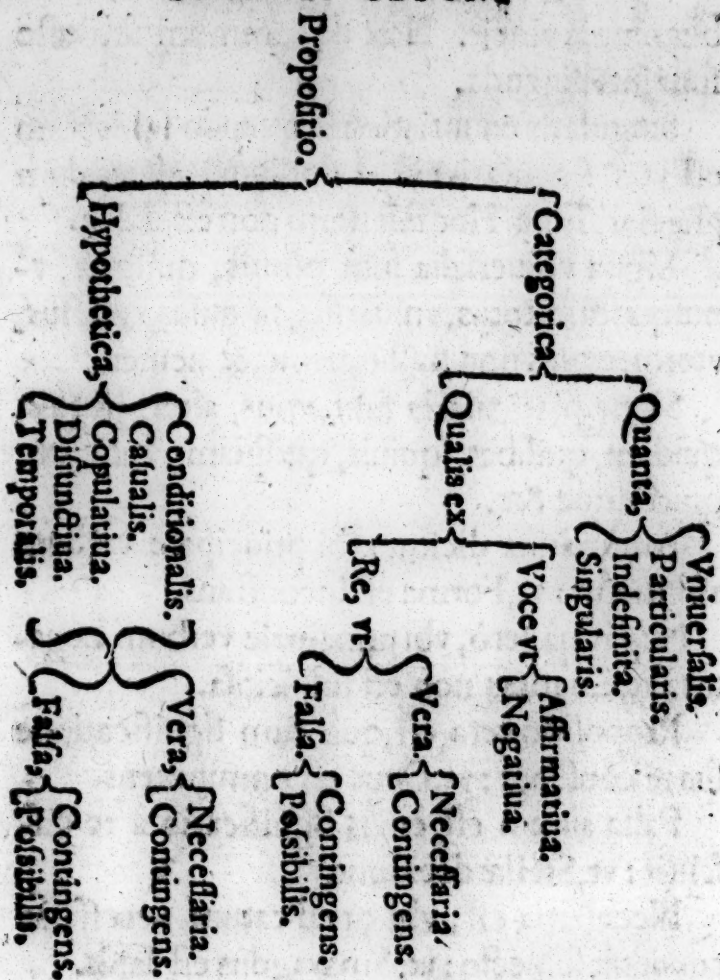 Propoſitio.
Categorica
Quanta,
Vniuerſalis.
Particularis.
Indefinita.
Singularis.
Qualis ex
Voce vt
Affirmatiua.
Negatiua.
Re, vt
Vera
Neceſſaria
Contingens.
Falſa,
Contingens.
Poſsibilis.
Hypothetica,
Conditionalis.
Caſualis.
Copulatiua.
Diſiunctiua.
Temporalis.
Vera,
Neceſſaria.
Contingens.
Falſa,
Contingens.
Poſsibilis,